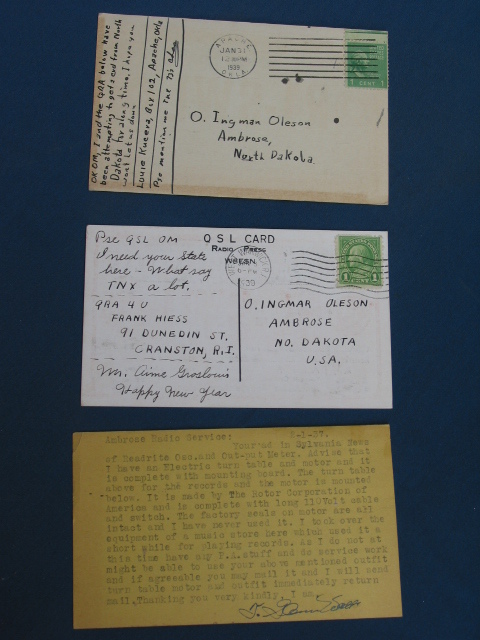 OK OM, I and the QRA below have
been attempting to get a card from North
Dakota for a long time. I hope you
wont let us down
Louie Kucera, Box 102, Apache, Okla
Pse mention me the 73
APACHE
JAN 31
12 30 PM
1939
OKLA.
1 CENT 1
O. Ingman Oleson
Ambrose,
North Dakota.
QSL CARD
Radio Press
Pse QSL OM
I need your State
here - What say
TNX a lot.
QRA 4 U
FRANK HIESS
91 DUNEDIN ST.
CRANSTON, R.I.
Mr. Aime Groslouis
Happy New Year
1 CENT 1
O. INGMAR OLESON
AMBROSE
NO. DAKOTA
U.S.A.
Ambrose Radio Service:
Your ad in Sylvania News
of Readrite Osc. and Out-put Meter. Advise that
I have an Electric turn table and motor and it
is complete with mounting board. The turn table
above for the records and the motor is mounted
below. It is made by The Rotor Corporation of
America and is complete with long 110 Volt cable
and switch. The factory seals on motor are all
intact and I have never used it. I took over the
equipment of a music store here which used it a
short while for playing records. As I do not at
this time have any P.A. stuff and do service work
might be able to use your above mentioned outfit
and if agreeable you may mail it and I will send
turn table motor and outfit immediately return
mail. Thanking you very kindly, I am